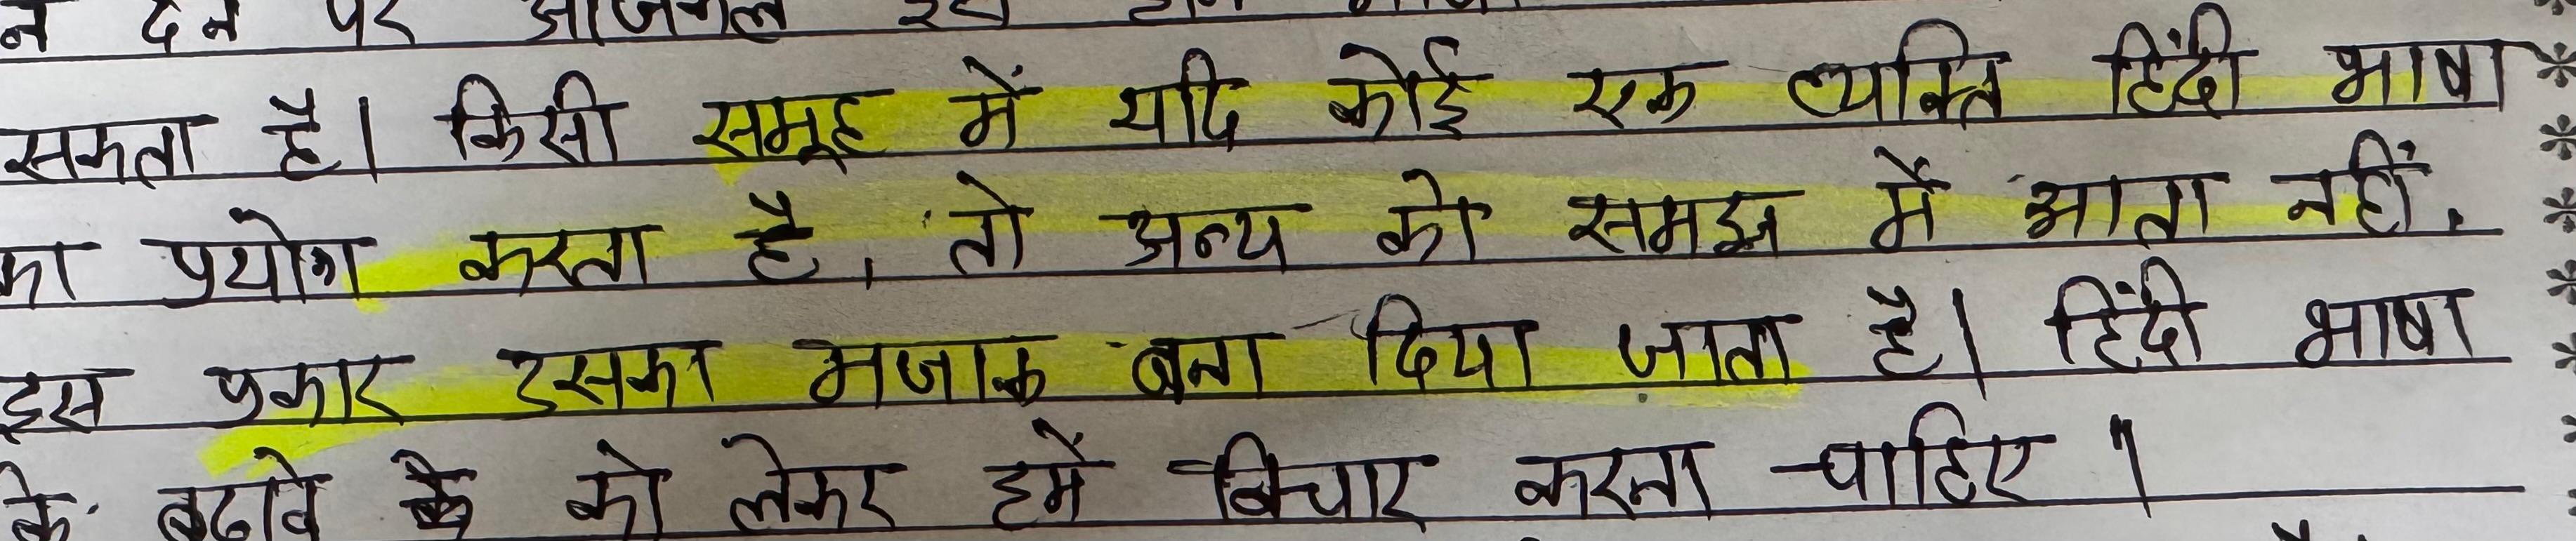 न देने पर आजकल
सकता है। किसी समूह में यदि कोई एक व्यक्ति हिंदी भाषा
का प्रयोग करता है, तो अन्य को समझ में आता नहीं,
इस प्रकार उसका मजाक बना दिया जाता है। हिंदी भाषा
के बढावे के को लेकर हमें विचार करना चाहिए।